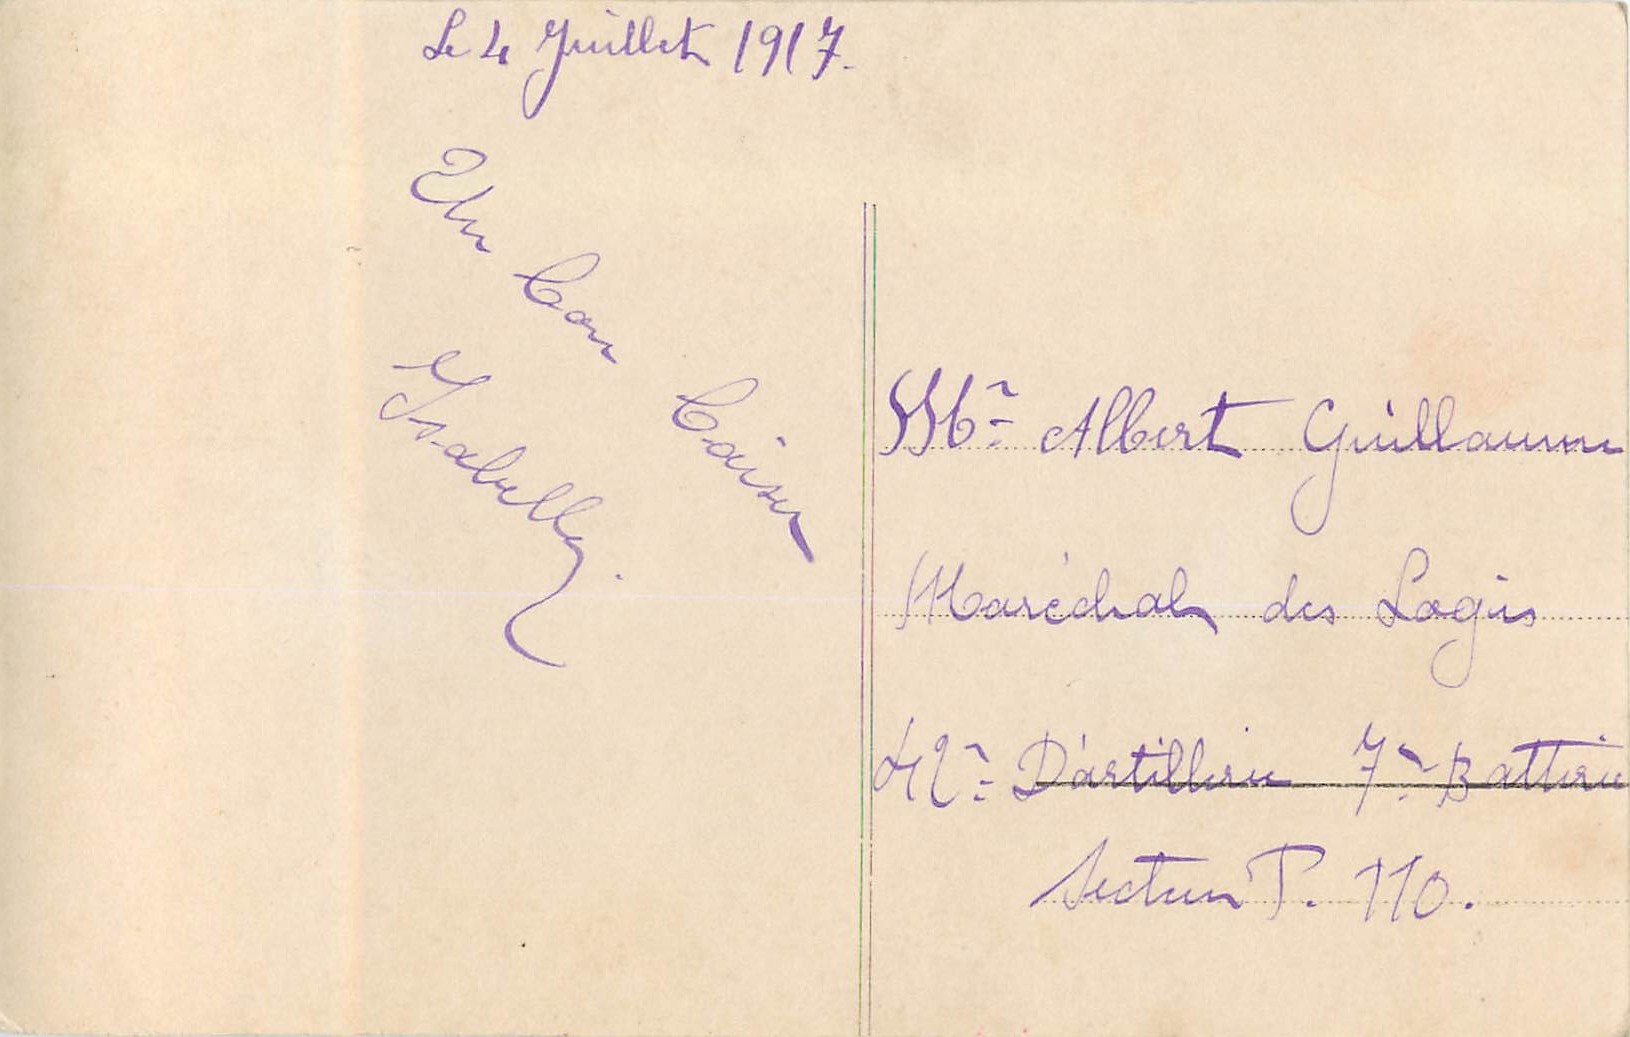 Le 4 Juillet 1917.
Un bon baiser
Isabelle.
Mr Albert Guillaume
Maréchal des Logis
42e D'artillerie 7e Batterie
Secteur P. 110.